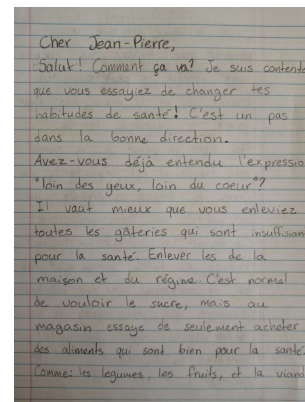 Cher Jean-Pierre,
Salut! Comment ça va? Je suis contente
que vous essayiez de changer tes
habitudes de santé! C'est un pas
dans la bonne direction.
Avez-vous déjà entendu l'expressio
"loin des yeux, loin du coeur"?
Il vaut mieux que vous enleviez
toutes les gâteries qui sont insuffisan
pour la santé. Enlever les de la
maison et du régime. C'est normal
de vouloir le sucre, mais au
magasin essaye de seulement acheter
des aliments qui sont bien pour la santé.
Comme: les legumes, les fruits, et la viand